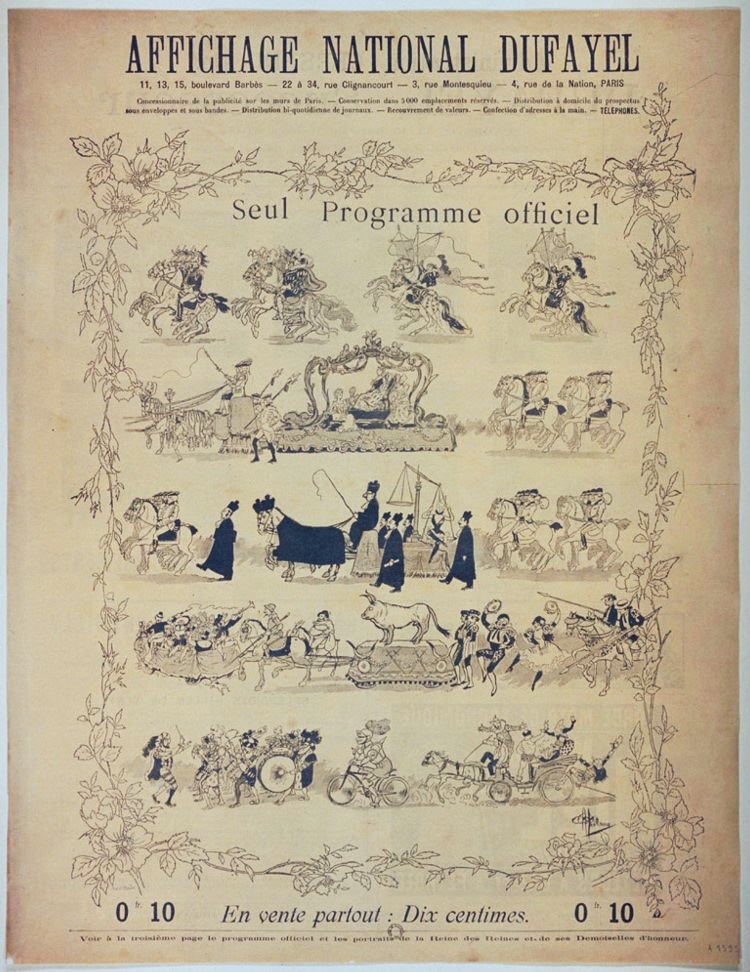 AFFICHAGE NATIONAL DUFAYEL
11, 13, 15, boulevard Barbès — 22 à 34, rue Clignancourt — 3, rue Montesquieu — 4, rue de la Nation, PARIS
Concessionnaire de la publicité sur les murs de Paris. — Conservation dans 5000 emplacements réservés. — Distribution à domicile du prospectus
sous enveloppes et sous bandes. — Distribution bi-quotidienne de journaux. — Recouvrement de valeurs. — Confection d'adresses à la main. — TÉLÉPHONES.
Seul Programme officiel
0 fr. 10 En vente partout : Dix centimes. 0 fr. 10
Voir à la troisième page le programme officiel et les portraits de la Reine des Reines et de ses Demoiselles d'honneur.